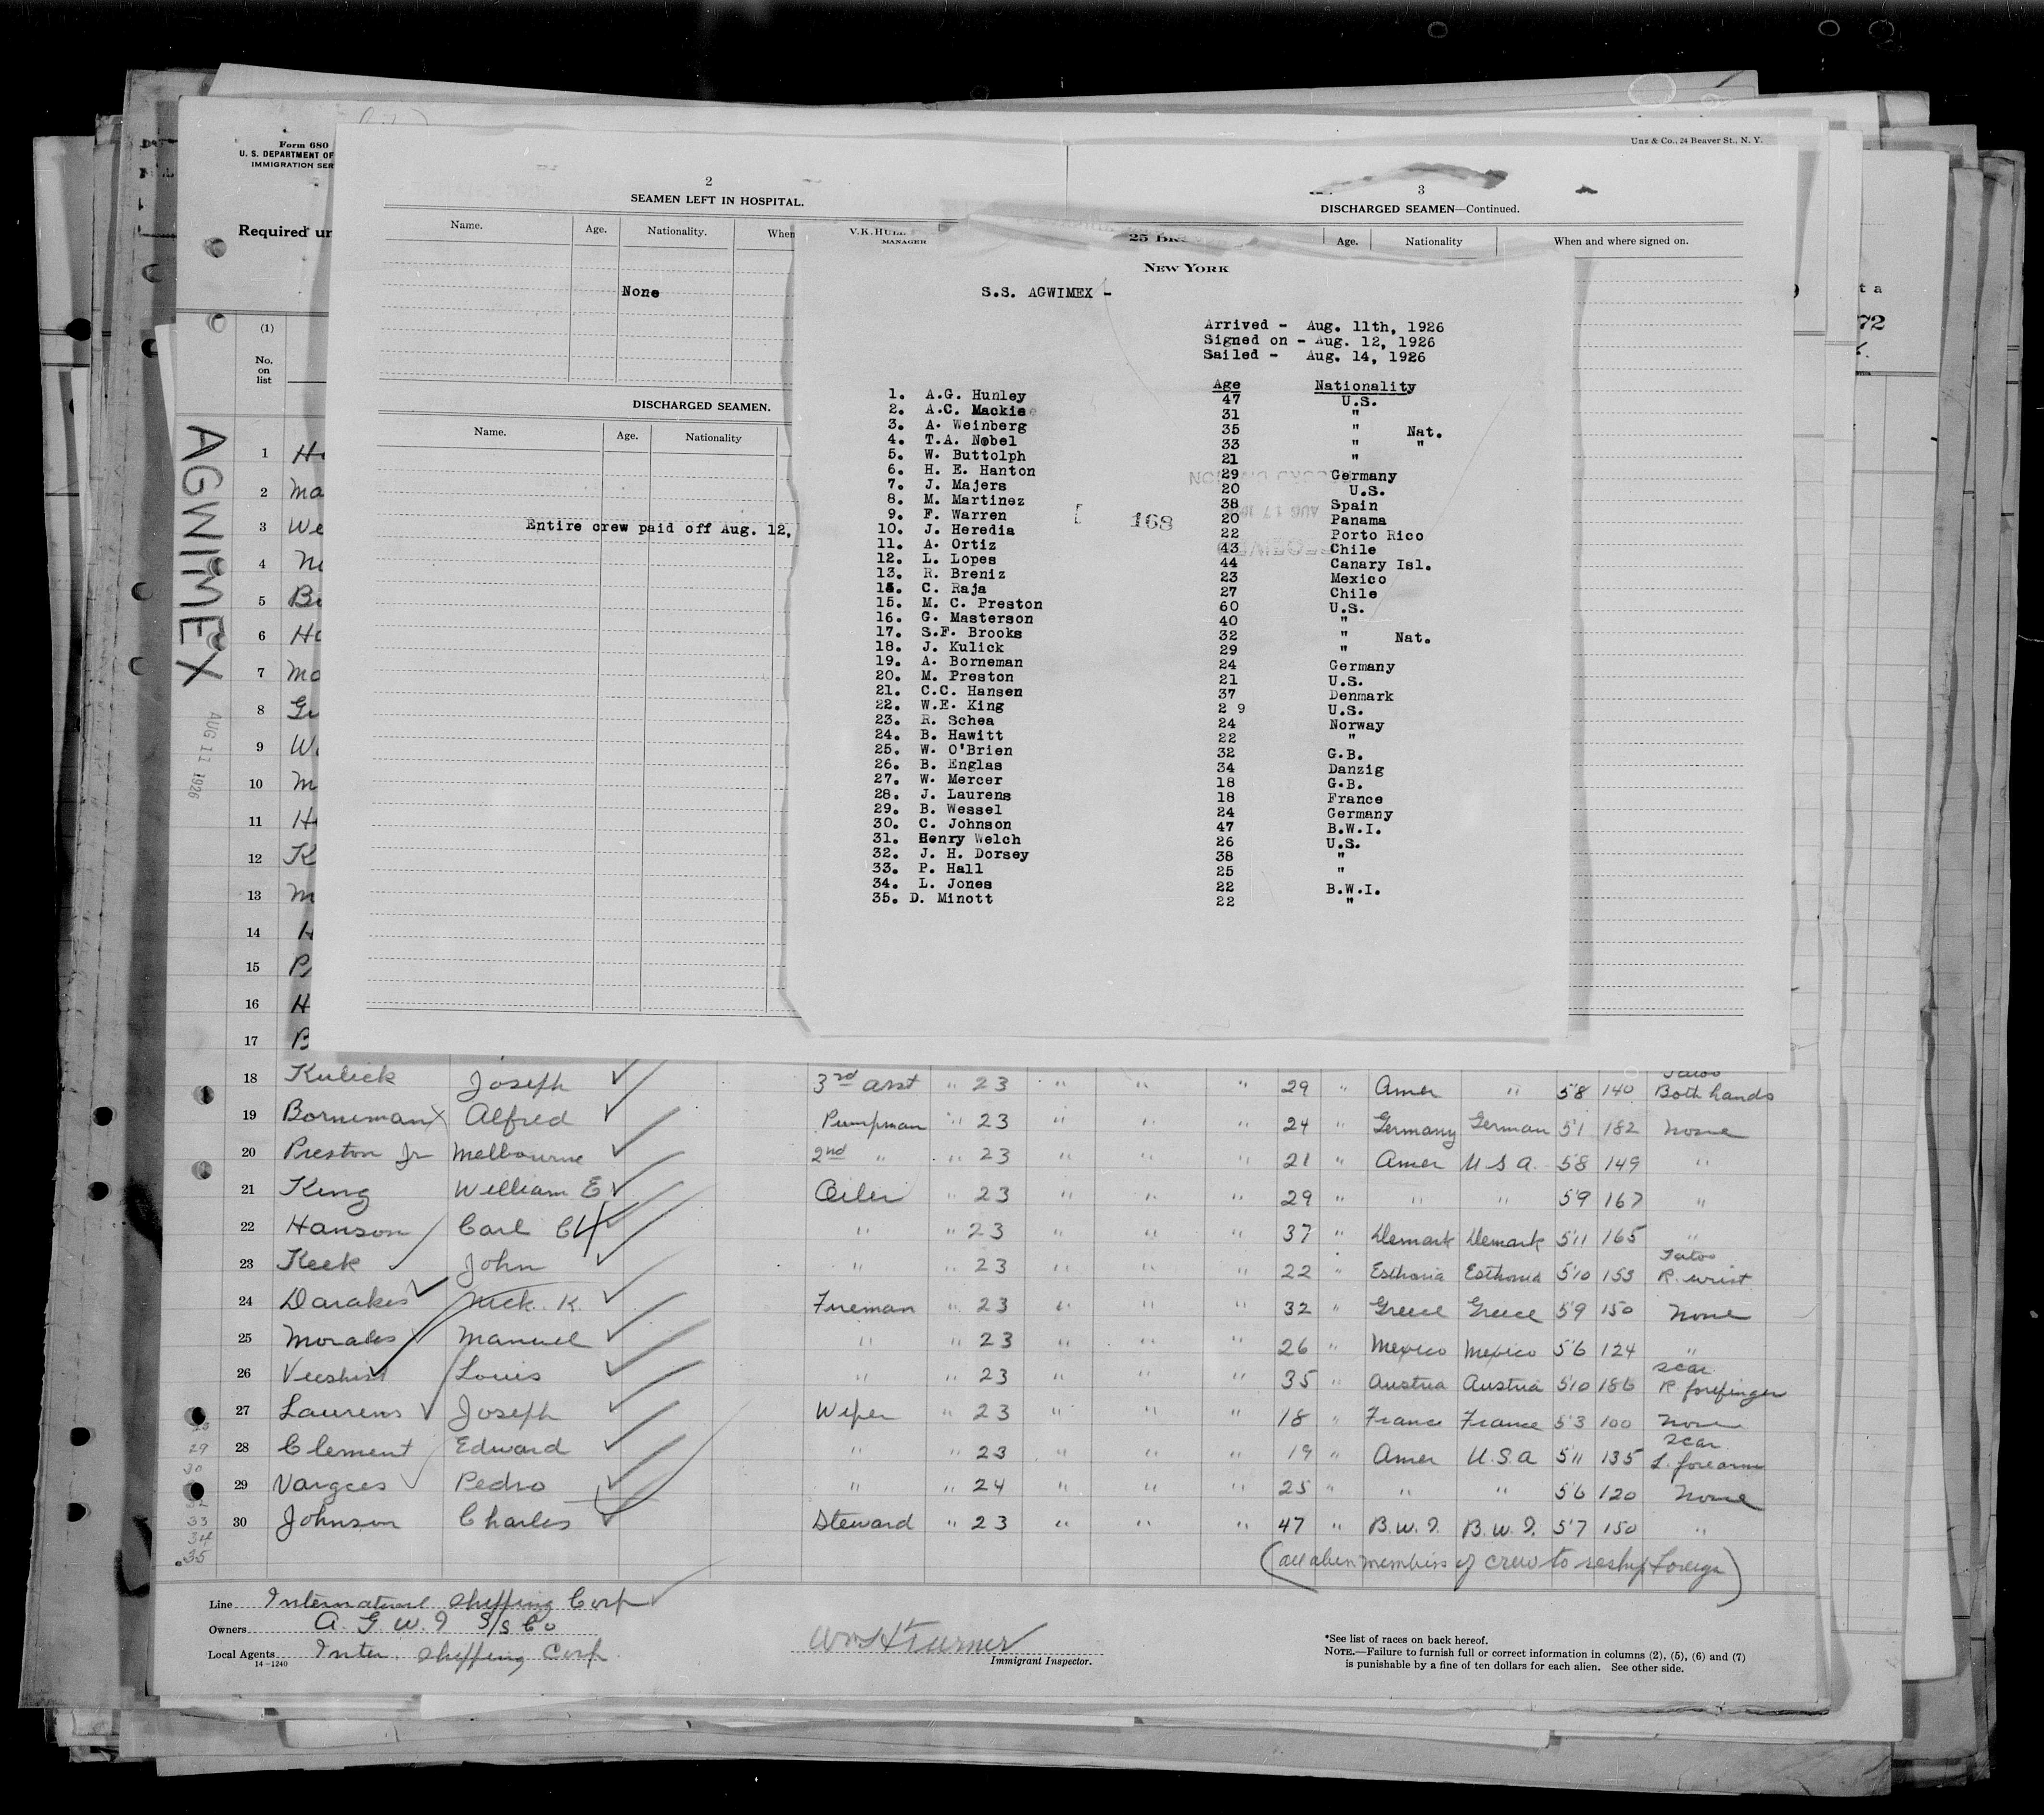 Unz & Co., 24 Beaver St., N. Y.
Form 680
U. S. DEPARTMENT OF
IMMIGRATION SER
Required un
(1)
No. on list
AGWIMEX
AUG 11 1926
2
SEAMEN LEFT IN HOSPITAL.
Name. Age. Nationality. When
None
DISCHARGED SEAMEN.
Name. Age. Nationality
Entire crew paid off Aug. 12,
3
DISCHARGED SEAMEN—Continued.
Age. Nationality When and where signed on.
V.K.HU
MANAGER
25 BR
NEW YORK
S.S. AGWIMEX -
Arrived - Aug. 11th, 1926
Signed on - Aug. 12, 1926
Sailed - Aug. 14, 1926
Age Nationality
1. A.G. Hunley 47 U.S.
2. A.C. Mackie 31 "
3. A. Weinberg 35 " Nat.
4. T.A. Nobel 33 " "
5. W. Buttolph 21 "
6. H. E. Hanton 29 Germany
7. J. Majers 20 U.S.
8. M. Martinez 38 Spain
9. F. Warren 20 Panama
10. J. Heredia 22 Porto Rico
11. A. Ortiz 43 Chile
12. L. Lopes 44 Canary Isl.
13. R. Breniz 23 Mexico
14. C. Raja 27 Chile
15. M. C. Preston 60 U.S.
16. G. Masterson 40 "
17. S.F. Brooks 32 " Nat.
18. J. Kulick 29 "
19. A. Borneman 24 Germany
20. M. Preston 21 U.S.
21. C.C. Hansen 37 Denmark
22. W.E. King 2 9 U.S.
23. R. Schea 24 Norway
24. B. Hawitt 22 "
25. W. O'Brien 32 G.B.
26. B. Englas 34 Danzig
27. W. Mercer 18 G.B.
28. J. Laurens 18 France
29. B. Wessel 24 Germany
30. C. Johnson 47 B.W.I.
31. Henry Welch 26 U.S.
32. J. H. Dorsey 38 "
33. P. Hall 25 "
34. L. Jones 22 B.W.I.
35. D. Minott 22 "
168
1 H
2 Ma
3 We
4 N
5 B
6 Ha
7 Ma
8 Gu
9 W
10 M
11 H
12 K
13 M
14 H
15 P
16 H
17 B
18 Kulick Joseph 3rd asst " 23 " " " 29 " Amer " 5'8 140 Tatoo Both hands
19 Borneman Alfred Pumpman " 23 " " " 24 " Germany German 5'1 182 None
20 Preston Jr Melbourne 2nd " " 23 " " " 21 " Amer U S A. 5'8 149 "
21 King William E Oiler " 23 " " " 29 " " " 5'9 167 "
22 Hanson Carl C " " 23 " " " 37 " Demark Demark 5'11 165 "
23 Keek John " " 23 " " " 22 " Esthonia Esthonia 5'10 153 Tatoo R. wrist
24 Darakes Nick. K. Fireman " 23 " " " 32 " Greece Greece 5'9 150 None
25 Morales Manuel " " 23 " " " 26 " Mexico Mexico 5'6 124 "
26 Louis " " 23 " " " 35 " Austria Austria 5'10 186 scar R. forefinger
27 Laurens Joseph Wiper " 23 " " " 18 " France France 5'3 100 None
28 Clement Edward " " 23 " " " 19 " Amer U.S.A 5'11 135 scar L. forearm
29 Vargees Pedro " " 24 " " " 25 " " " 5'6 120 None
30 Johnson Charles Steward " 23 " " " 47 " B.W.I. B.W.I. 5'7 150 "
29
30
33
34
35
(all alien members of crew to reship foreign)
Line International Shipping Corp
Owners A. G. W. I S/S Co
Local Agents Inter. Shipping Corp.
14-1240
Wm H Turner
Immigrant Inspector.
*See list of races on back hereof.
NOTE.—Failure to furnish full or correct information in columns (2), (5), (6) and (7)
is punishable by a fine of ten dollars for each alien. See other side.